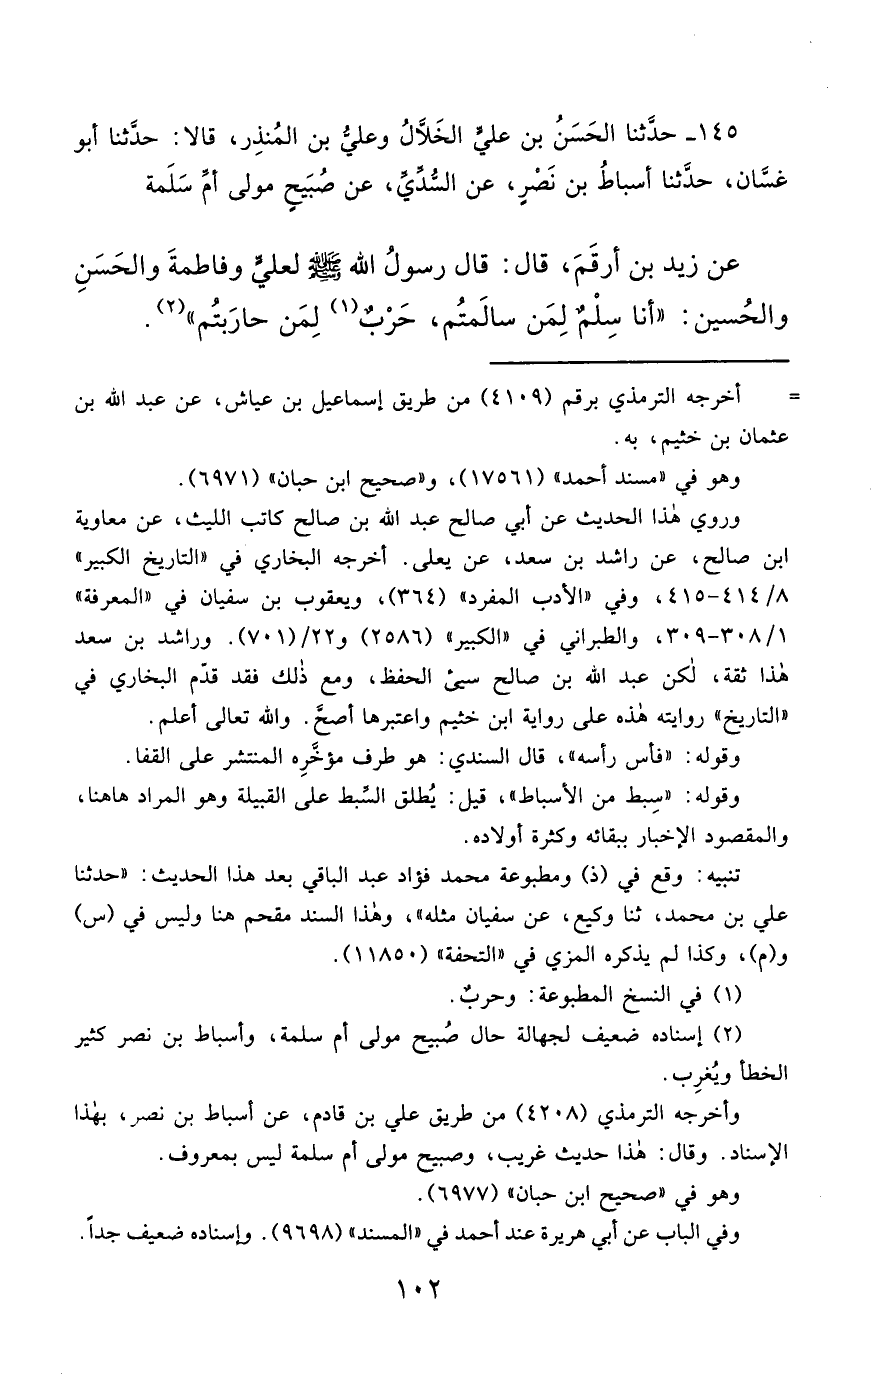 ١٤٥ـ حدَّثنا الحَسَنُ بن عليٍّ الخَلَّالُ وعليُّ بن المُنذِر، قالا: حدَّثنا أبو
غسَّان، حدَّثنا أسباطُ بن نَصْرٍ، عن السُّدِّيِّ، عن صُبَيحٍ مولى أمِّ سَلَمة
عن زيد بن أرقَمَ، قال: قال رسولُ الله ﷺ لعليٍّ وفاطمةَ والحَسَنِ
والحُسين: «أنا سِلْمٌ لِمَن سالَمتُم، حَرْبٌ(١) لِمَن حارَبتُم»(٢).
= أخرجه الترمذي برقم (٤١٠٩) من طريق إسماعيل بن عياش، عن عبد الله بن
عثمان بن خثيم، به.
وهو في «مسند أحمد» (١٧٥٦١)، و«صحيح ابن حبان» (٦٩٧١).
وروي هٰذا الحديث عن أبي صالح عبد الله بن صالح كاتب الليث، عن معاوية
ابن صالح، عن راشد بن سعد، عن يعلى. أخرجه البخاري في «التاريخ الكبير»
٨/ ٤١٤-٤١٥، وفي «الأدب المفرد» (٣٦٤)، ويعقوب بن سفيان في «المعرفة»
١/ ٣٠٨-٣٠٩، والطبراني في «الكبير» (٢٥٨٦) و٢٢/(٧٠١). وراشد بن سعد
هٰذا ثقة، لٰكن عبد الله بن صالح سيئ الحفظ، ومع ذٰلك فقد قدّم البخاري في
«التاريخ» روايته هٰذه على رواية ابن خثيم واعتبرها أصحَّ. والله تعالى أعلم.
وقوله: «فأس رأسه»، قال السندي: هو طرف مؤخَّرِه المنتشر على القفا.
وقوله: «سِبط من الأسباط»، قيل: يُطلق السِّبط على القبيلة وهو المراد هاهنا،
والمقصود الإخبار ببقائه وكثرة أولاده.
تنبيه: وقع في (ذ) ومطبوعة محمد فؤاد عبد الباقي بعد هذا الحديث: «حدثنا
علي بن محمد، ثنا وكيع، عن سفيان مثله»، وهٰذا السند مقحم هنا وليس في (س)
و(م)، وكذا لم يذكره المزي في «التحفة» (١١٨٥٠).
(١) في النسخ المطبوعة: وحربٌ.
(٢) إسناده ضعيف لجهالة حال صُبيح مولى أم سلمة، وأسباط بن نصر كثير
الخطأ ويُغرِب.
وأخرجه الترمذي (٤٢٠٨) من طريق علي بن قادم، عن أسباط بن نصر، بهٰذا
الإسناد. وقال: هٰذا حديث غريب، وصبيح مولى أم سلمة ليس بمعروف.
وهو في «صحيح ابن حبان» (٦٩٧٧).
وفي الباب عن أبي هريرة عند أحمد في «المسند» (٩٦٩٨). وإسناده ضعيف جداً.
١٠٢